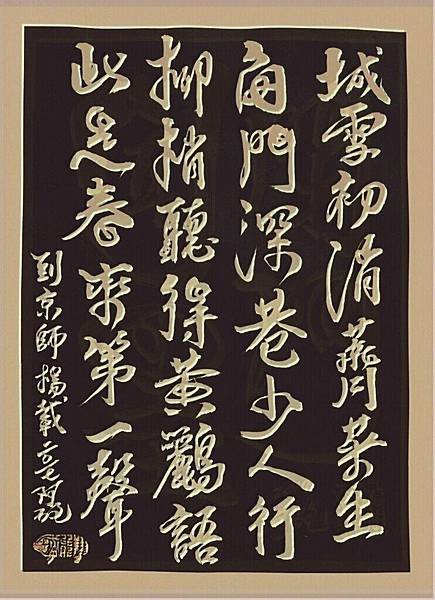 城雪初消薺菜生
角門深巷少人行
柳梢聽得黃鸝語
此是春來第一聲
到京師楊載